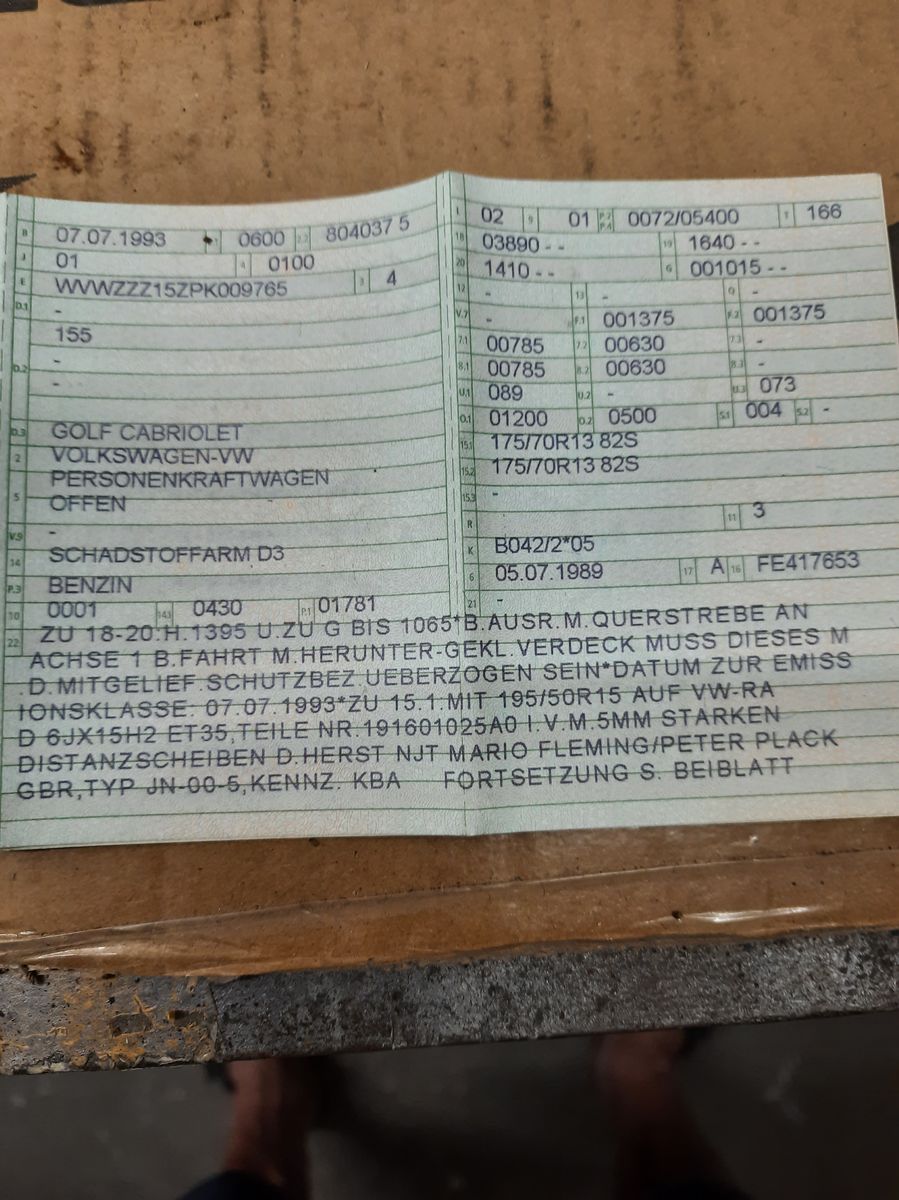 B 07.07.1993 2.1 0600 2.2 804037 5
J 01 4 0100
E WVWZZZ15ZPK009765 3 4
D.1 -
155
D.2 -
-
D.3 GOLF CABRIOLET
2 VOLKSWAGEN-VW
5 PERSONENKRAFTWAGEN
OFFEN
V.9 -
14 SCHADSTOFFARM D3
P.3 BENZIN
10 0001 14.1 0430 P.1 01781
L 02 9 01 P.2 P.4 0072/05400 T 166
18 03890 - - 19 1640 - -
20 1410 - - G 001015 - -
12 - 13 - Q -
V.7 - F.1 001375 F.2 001375
7.1 00785 7.2 00630 7.3 -
8.1 00785 8.2 00630 8.3 -
U.1 089 U.2 - U.3 073
O.1 01200 O.2 0500 S.1 004 S.2 -
15.1 175/70R13 82S
15.2 175/70R13 82S
15.3 -
R 11 3
K B042/2*05
6 05.07.1989 17 A 16 FE417653
21 -
22 ZU 18-20:H.1395 U.ZU G BIS 1065*B.AUSR.M.QUERSTREBE AN
ACHSE 1 B.FAHRT M.HERUNTER-GEKL.VERDECK MUSS DIESES M
.D.MITGELIEF.SCHUTZBEZ UEBERZOGEN SEIN*DATUM ZUR EMISS
IONSKLASSE: 07.07.1993*ZU 15.1:MIT 195/50R15 AUF VW-RA
D 6JX15H2 ET35,TEILE NR.191601025A0 I.V.M.5MM STARKEN
DISTANZSCHEIBEN D.HERST NJT MARIO FLEMING/PETER PLACK
GBR,TYP JN-00-5,KENNZ. KBA FORTSETZUNG S. BEIBLATT